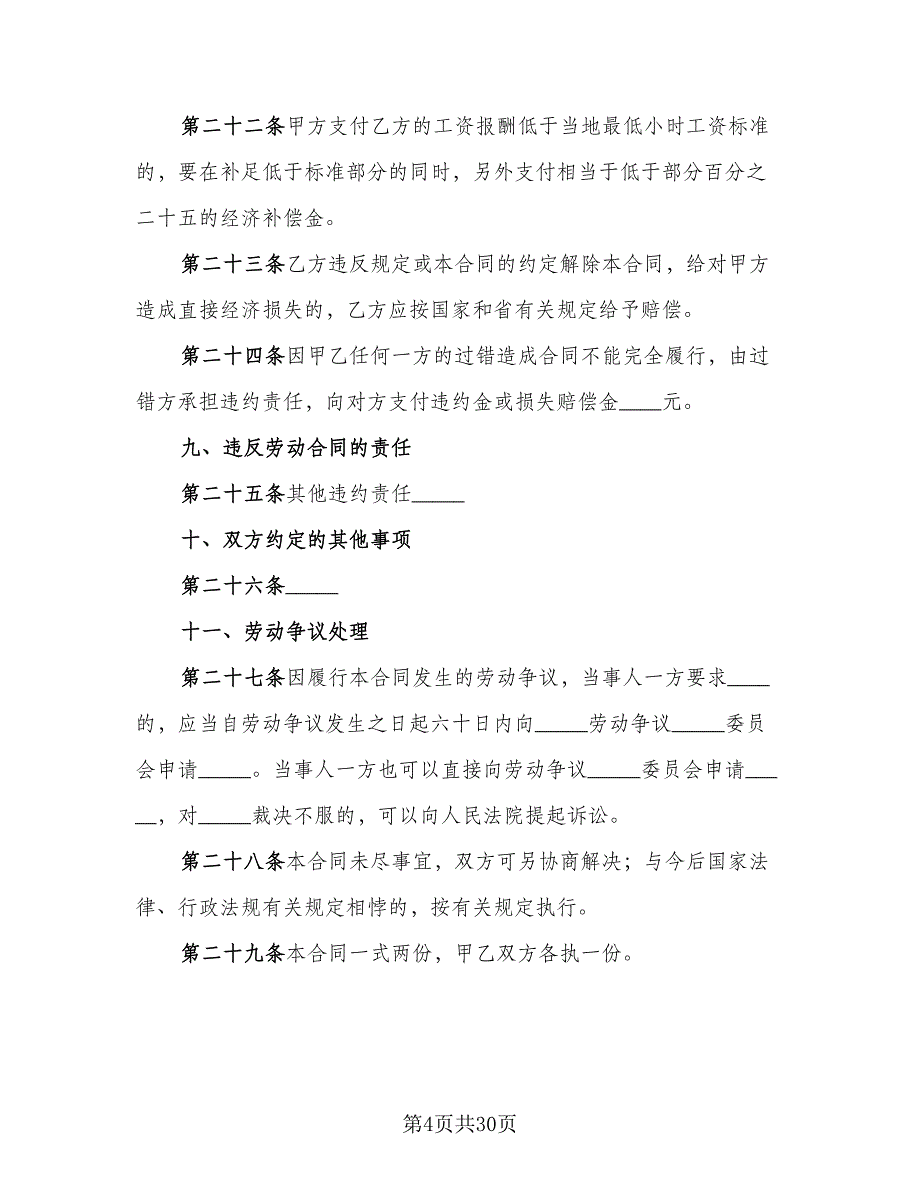 第二十二条甲方支付乙方的工资报酬低于当地最低小时工资标准
的，要在补足低于标准部分的同时，另外支付相当于低于部分百分之
二十五的经济补偿金。
第二十三条乙方违反规定或本合同的约定解除本合同，给对甲方
造成直接经济损失的，乙方应按国家和省有关规定给予赔偿。
第二十四条因甲乙任何一方的过错造成合同不能完全履行，由过
错方承担违约责任，向对方支付违约金或损失赔偿金____元。
九、违反劳动合同的责任
第二十五条其他违约责任_____
十、双方约定的其他事项
第二十六条_____
十一、劳动争议处理
第二十七条因履行本合同发生的劳动争议，当事人一方要求____
的，应当自劳动争议发生之日起六十日内向_____劳动争议_____委员
会申请_____。当事人一方也可以直接向劳动争议_____委员会申请___
__，对_____裁决不服的，可以向人民法院提起诉讼。
第二十八条本合同未尽事宜，双方可另协商解决；与今后国家法
律、行政法规有关规定相悖的，按有关规定执行。
第二十九条本合同一式两份，甲乙双方各执一份。
第4页共30页